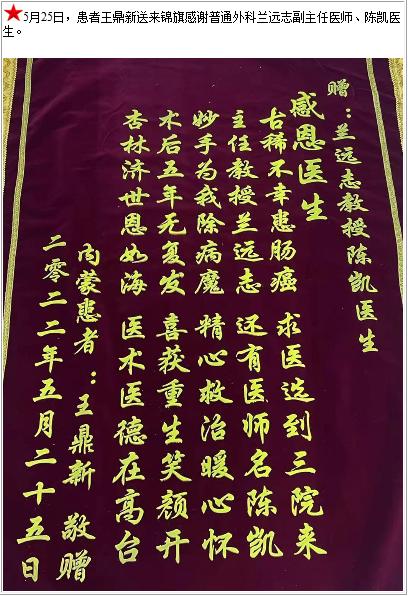 ★5月25日，患者王鼎新送来锦旗感谢普通外科兰远志副主任医师、陈凯医
生。
赠：兰远志教授陈凯医生
感恩医生
古稀不幸患肠癌 求医选到三院来
主任教授兰远志 还有医师名陈凯
妙手为我除病魔 精心救治暖心怀
术后五年无复发 喜获重生笑颜开
杏林济世恩如海 医术医德在高台
内蒙患者：王鼎新 敬赠
二零二二年五月二十五日